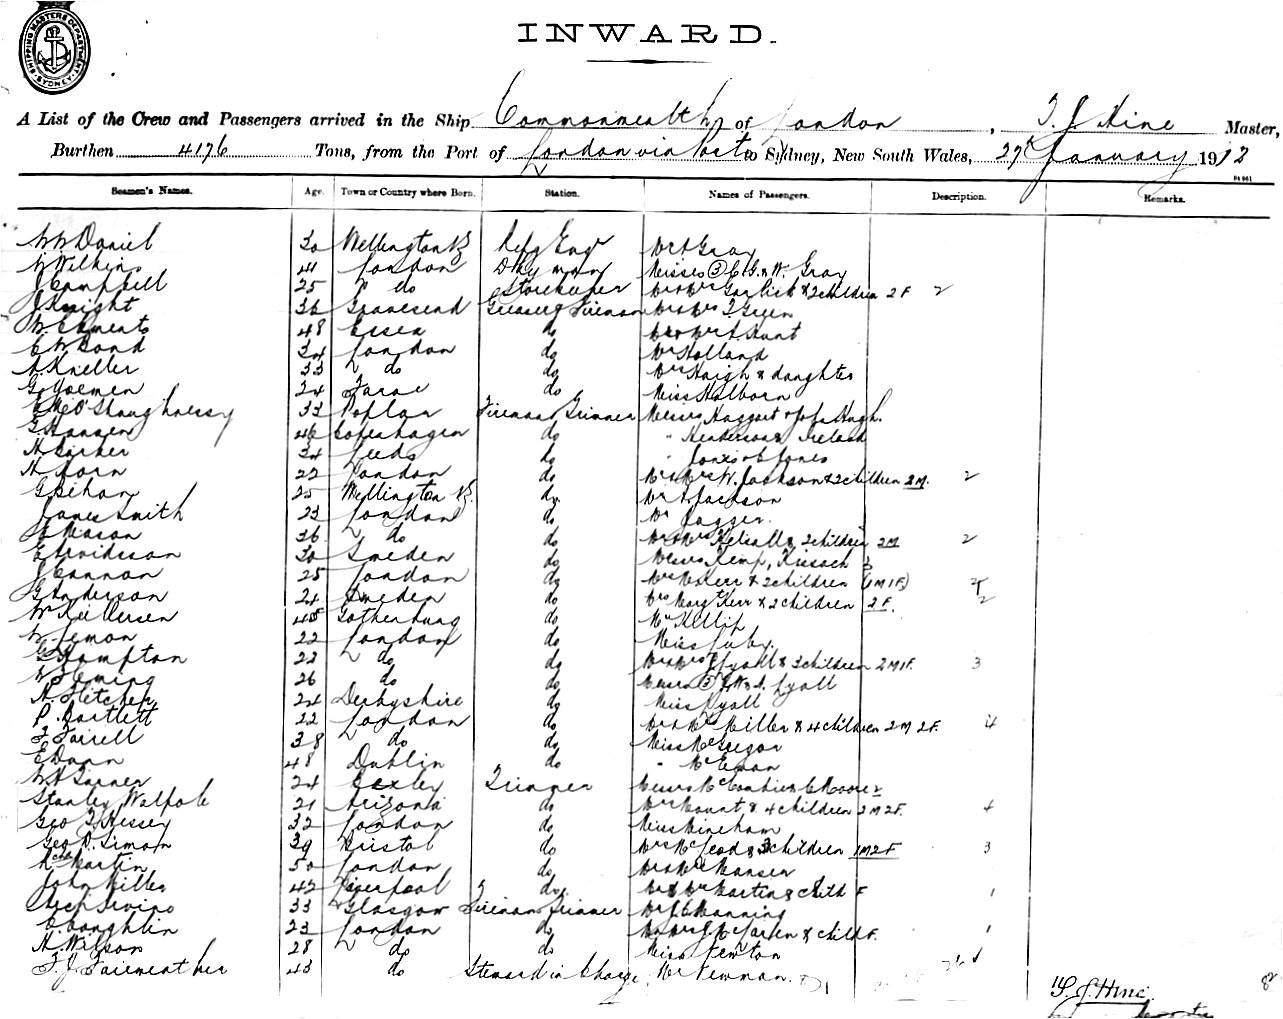 SHIPPING MASTERS DEPARTMENT SYDNEY
INWARD.
A List of the Crew and Passengers arrived in the Ship Commonwealth of London, T. J. Hine Master,
Burthen 4176 Tons, from the Port of London via Ports to Sydney, New South Wales, 27th January 1912
Seamen's Names. Age. Town or Country where Born. Station. Names of Passengers. Description. Remarks.
W W Daniel 30 Wellington NZ Refg Engr Mr A Gray
W Wilkins 41 London Dky man Misses (3) C. G. & W. Gray
J Campbell 25 " do Storekeeper Mr & Mrs Garlick & 2 children 2 F 2
J Knight 36 Gravesend Greaser & Fireman Mr & Mrs T Green
W Clements 48 Essex do Mr & Mrs A Hunt
C W Bond 34 London do Mr Holland
A Kneller 33 " do do Mrs Haigh & daughter
G Yoemen 24 do Miss Holborn
O'Shaughnessy 33 Poplar Fireman & Trimmer Messrs Haggart
G Hansen 46 Copenhagen do " Henderson & Ireland
H Barker 34 Leeds do " Jones & C Jones
A Horn 22 London do Mr & Mrs W. Jackson & 2 children 2 M. 2
G 25 Wellington NZ do Mr A Jackson
James Smith 23 London do Mr Jagger
Mason 36 " do do Mr & Mrs Kelsall & 2 children 2 M 2
E Arvidsson 30 Sweden do Messrs Kemp, Kissack 2
J Cannon 25 London do Mrs Kerr & 2 children (1 M 1 F) 2
G Anderson 24 Sweden do Mrs Margt Kerr & 2 children 2 F. 2
Wm 45 Gothenburg do Mr Killip
W. Lemon 22 London do Miss Luby
G Hampton 22 " do do Mr & Mrs J Lyall & 3 children 2 M 1 F. 3
W Fleming 26 do do Messrs (3) Lyall
H. Fletcher 24 Derbyshire do Miss Lyall
P. Bartlett 22 London do Mr & Mrs Miller & 4 children 2 M 2 F. 4
F Farrell 38 " do do Miss McGregor
E Dunn 48 Dublin do " McEwan
W H Turner 24 Bexley Trimmer Messrs McCombie & C Moore 2
Stanley Walpole 21 Arizona do Mrs Mount & 4 children 2 M 2 F. 4
Geo T Hersey 32 London do Miss Mineham
Geo D. Simon 39 Bristol do Mrs McLeod & 3 children 1 M 2 F 3
Martin 50 London do Mr & Mrs Manser
John Miller 42 Liverpool do Mr & Mrs Martin & child F 1
33 Glasgow Fireman & Trimmer Mr J C Manning
C. Coughlin 23 London do Mr & Mrs J McLaren & child F. 1
A. Wilson 28 " do do Miss Newton
T. J. Fairweather 43 do Steward in Charge Mr Newman
T. J. Hine